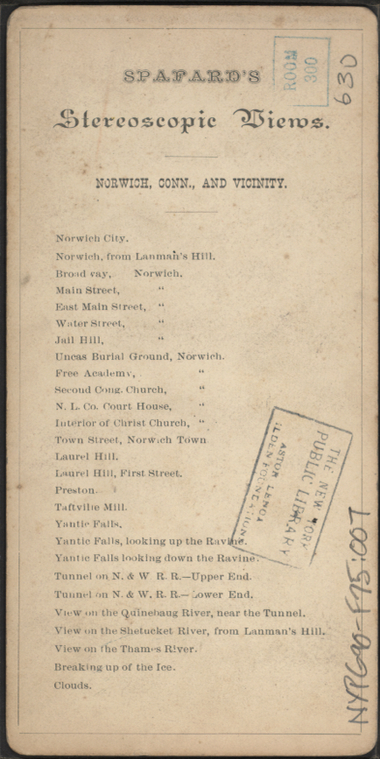 SPAFARD'S
Stereoscopic Views.
NORWICH, CONN., AND VICINITY.
Norwich City.
Norwich, from Lanman's Hill.
Broadway, Norwich.
Main Street, "
East Main Street, "
Water Street, "
Jail Hill, "
Uncas Burial Ground, Norwich.
Free Academy, "
Second Cong. Church, "
N. L. Co. Court House, "
Interior of Christ Church, "
Town Street, Norwich Town
Laurel Hill.
Laurel Hill, First Street.
Preston.
Taftville Mill.
Yantic Falls.
Yantic Falls, looking up the Ravine.
Yantic Falls looking down the Ravine.
Tunnel on N. & W R. R.—Upper End.
Tunnel on N. & W. R. R.—Lower End.
View on the Quinebaug River, near the Tunnel.
View on the Shetucket River, from Lanman's Hill.
View on the Thames River.
Breaking up of the Ice.
Clouds.
ROOM
300
630
THE NEW YORK
PUBLIC LIBRARY
ASTOR LENOX
TILDEN FOUNDATION